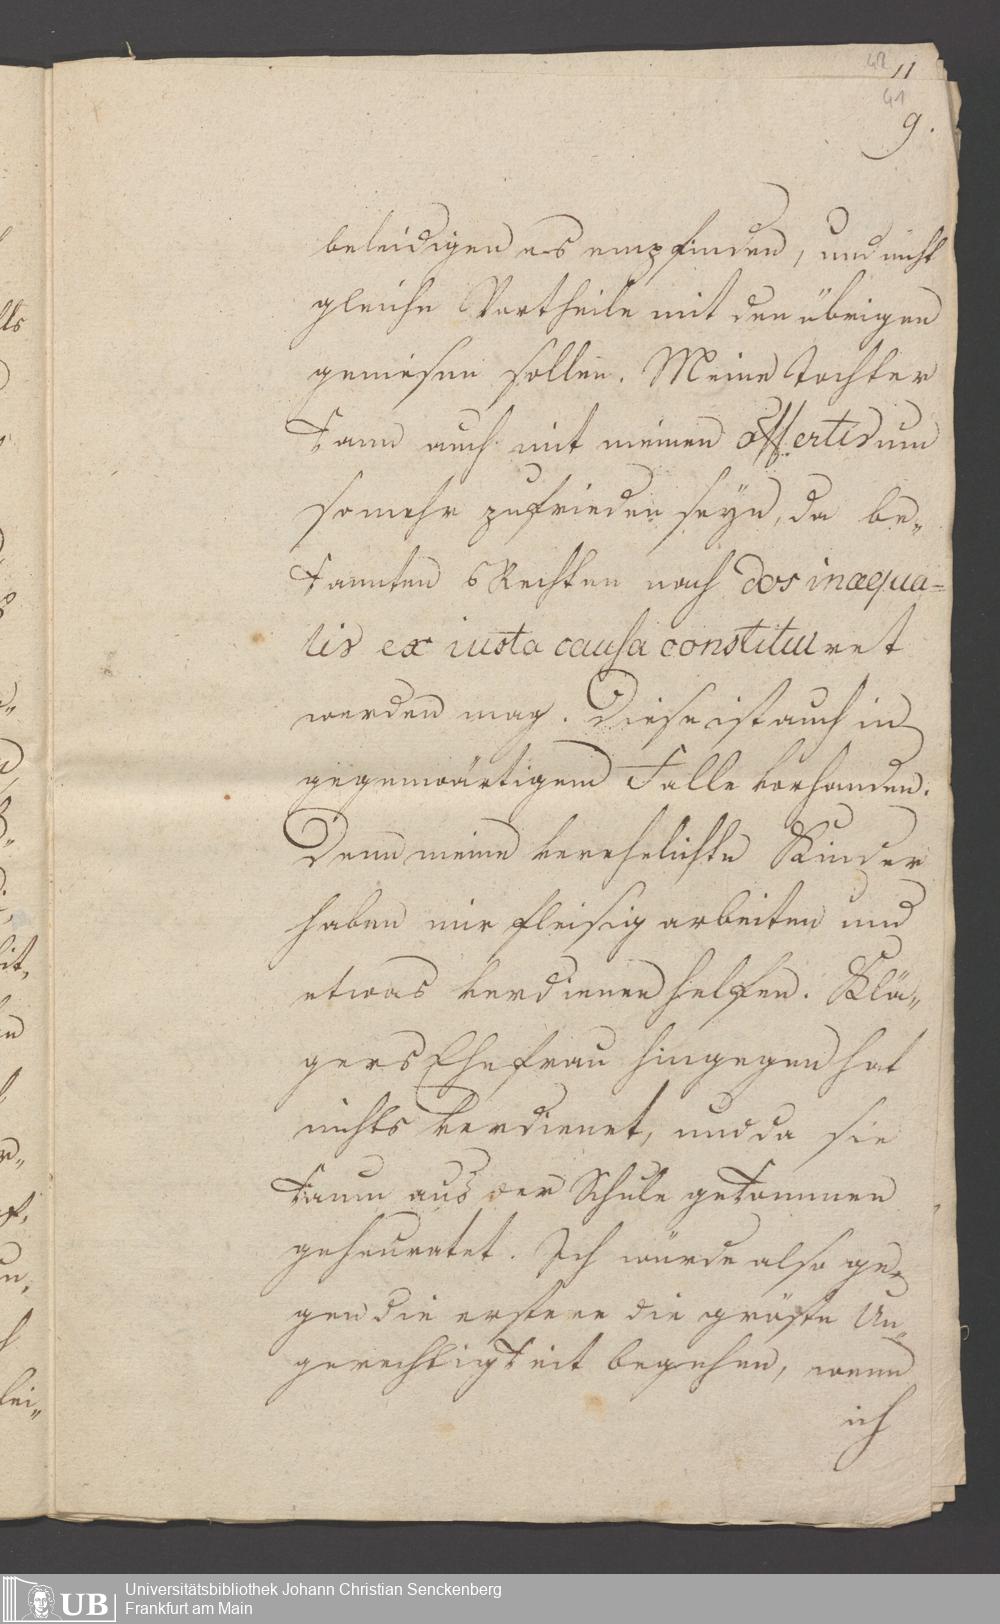 42 11
41
9.
beleidigen es empfinden, und nicht
gleiche Vortheile mit den übrigen
geniesen sollen. Meine Tochter
kann auch mit meinen offertis um
somehr zufrieden seyn, da be„
kannten Rechten nach dos inæqua=
lis ex iusta causa constituiret
werden mag. Diese ist auch in
gegenwärtigem Falle vorhanden.
Denn meine verehelichte Kinder
haben mir fleisig arbeiten und
etwas verdienen helfen. Klä„
gers Ehefrau hingegen hat
nichts verdienet, und da sie
kaum aus der Schule gekommen
geheuratet. Ich würde also ge„
gen die erstere die gröste Un„
gerechtigkeit begehen, wenn
ich
lts
it,
lei„
UB Universitätsbibliothek Johann Christian Senckenberg
Frankfurt am Main